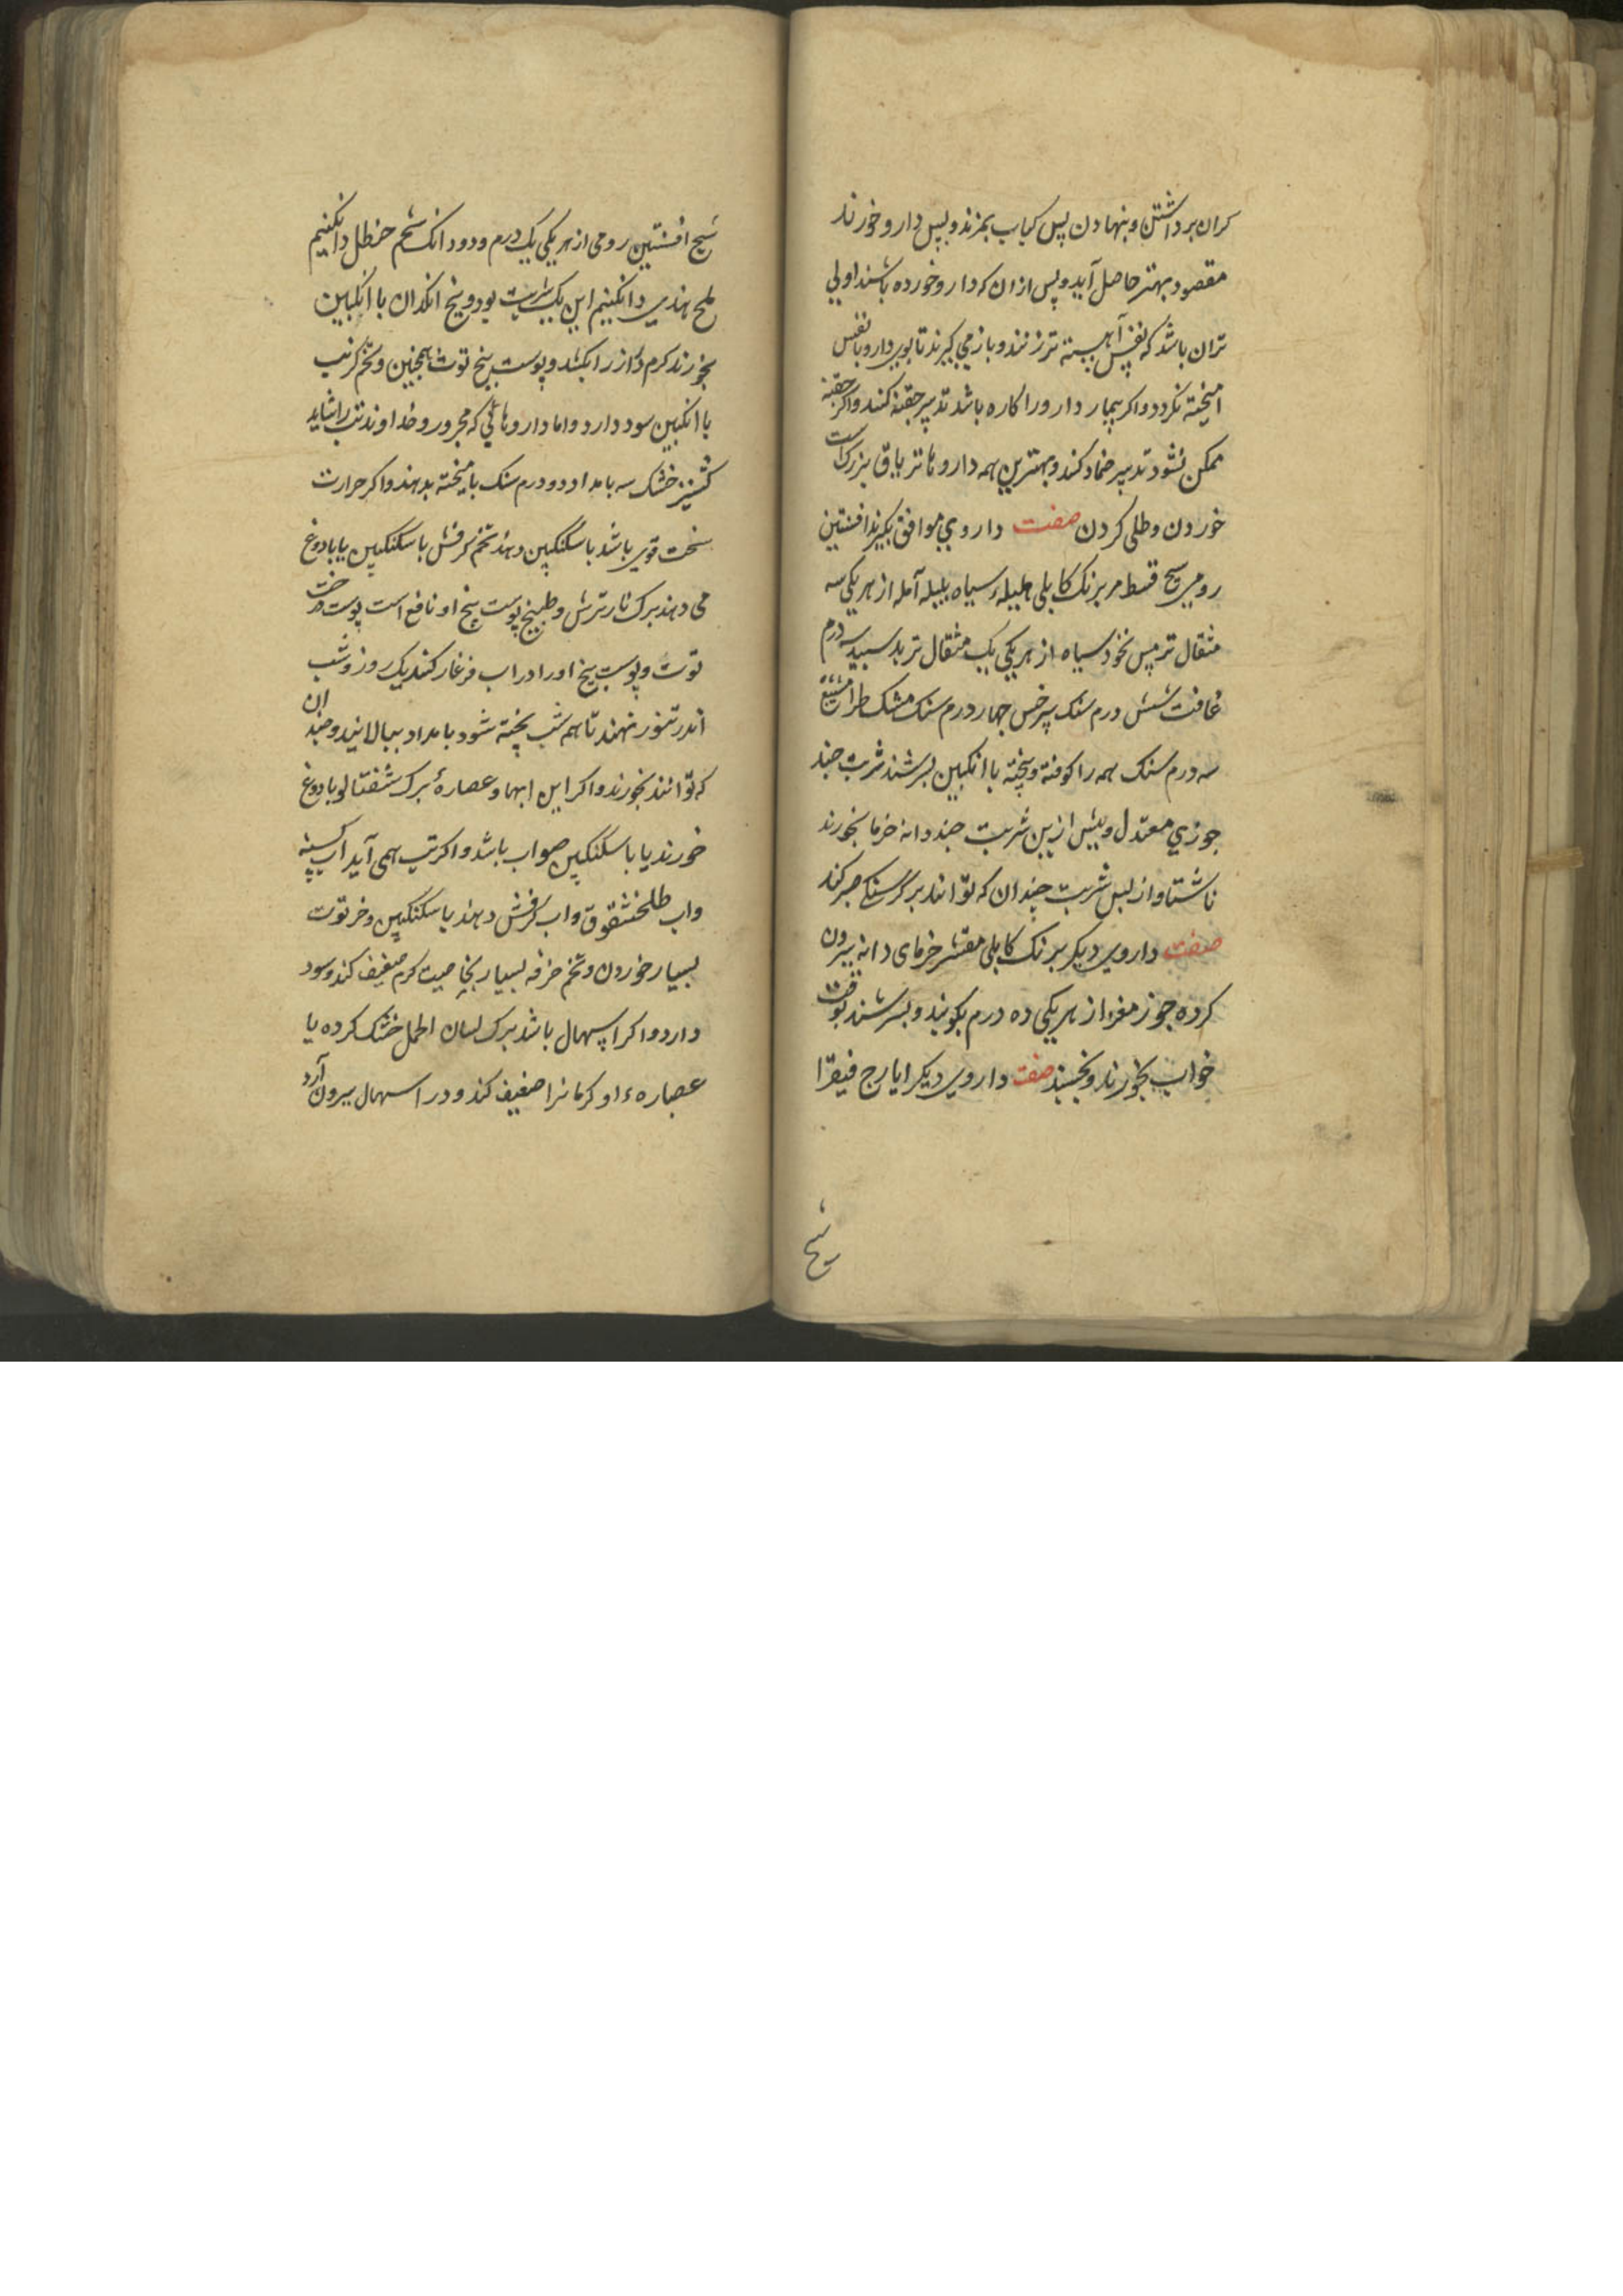 کران برداشتن و بنهادن پس کباب بمزند و پس دارو خورند
مقصود بهتر حاصل آید و پس ازان که دارو خورده باشند اولی
تران باشد که نفس آهسته تر زنند و باز می گیرند تا بوی دارو با نفس
امیخته نکردد و اکر بیمار دارو را کاره باشد تدبیر حقنه کنند و اکر حقنه
ممکن نشود تدبیر ضماد کنند و بهترین همه داروها تریاق بزرک است
خوردن و طلی کردن صفت داروی موافق بکیرند افسنتین
رومی شیح قسط مر برنک کابلی هلیلهٔ سیاه بلیله آمله از هر یکی سه
مثقال ترمس نخود سیاه از هر یکی یک مثقال تربد سپید سه درم
غافت شش درم سنک سرخس چهار درم سنک مشک طرامشیع
سه درم سنک همه را کوفته و بیخته با انکبین بسرشند شربت چند
جوزی معتدل و پیش ازین شربت چند دانه خرما بخورند
ناشتا و از پس شربت چندان که توانند بر کرسنکی صبر کند
صفت داروی دیکر برنک کابلی مقشر خرمای دانه بیرون
کرده جوز مغز از هر یکی ده درم بکوبند و بسرشند بوقت
خواب بخورند و بخسبند صفت داروی دیکر ایارج فیقرا
شیح
شیح افسنتین رومی از هر یکی یک درم و دو دانک شحم حنظل دانکنیم
ملح هندی دانکنیم این یک شربت بود و بیخ انکدان با انکبین
بخورند کرم دراز را بکشد و پوست بیخ توت همچنین و تخم کرنب
با انکبین سود دارد و اما داروهائی که محرور و خداوند تب را شاید
کشنیز خشک سه بامداد دو درم سنک با میخته بدهند و اکر حرارت
سخت قوی باشد با سکنکبین دهند تخم کرفش با سکنکبین یا با دوغ
می دهند برک نار ترش و طبیخ پوست بیخ او نافع است پوست درخت
توت و پوست بیخ او را در اب فرغار کنند یک روز و شب
اندر تنور نهند تا هم شب پخته شود بامداد ببالانید و چند ان
که توانند بخورند و اکر این ابها و عصارهٔ برک شفتالو با دوغ
خورند یا با سکنکبین صواب باشد و اکر تب همی آید اب کسنه
و اب طلخشقوق و اب کرفش دهند با سکنکبین و خر توت
بسیار خوردن و تخم خرفه بسیار بخاصیت کرم ضعیف کند و سود
دارد و اکر اسهال باشد برک لسان الحمل خشک کرده یا
عصارهء او کرمانرا ضعیف کند و در اسهال بیرون آرد